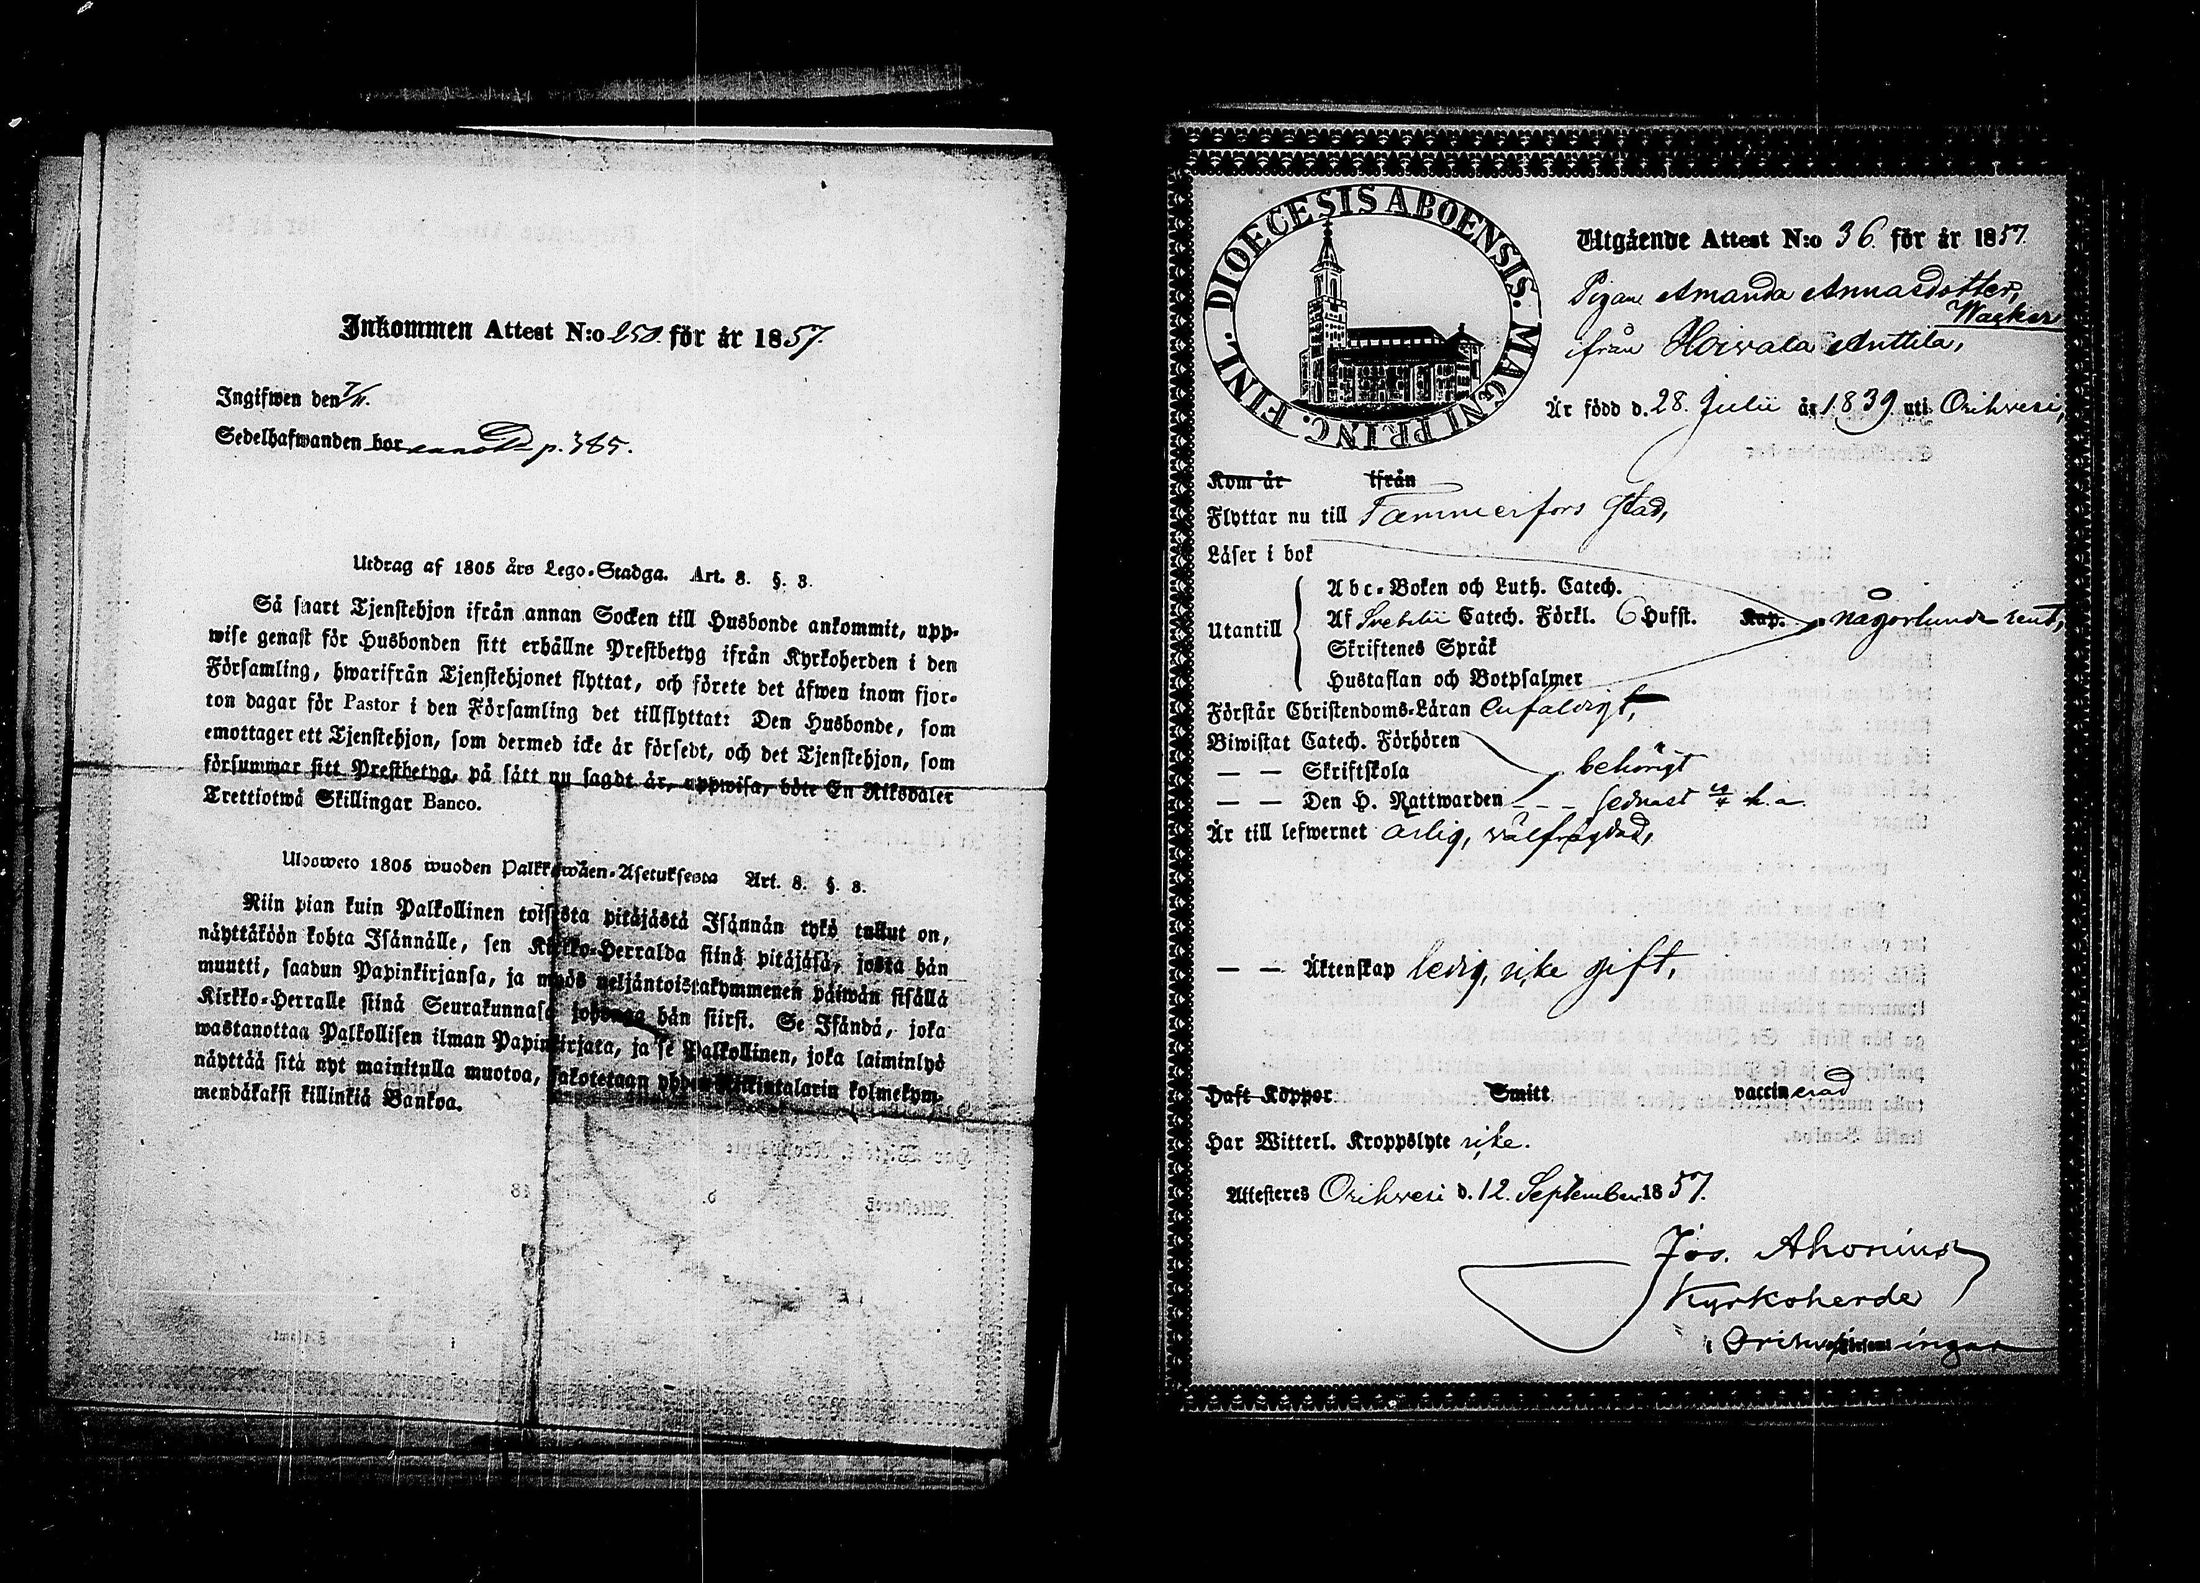 Inkommen Attest N:o 250. för år 1857.
Ingifwen den 7/11.
Sedelhafwanden bor p. 385.
Utdrag af 1805 års Lego-Stadga. Art. 8. §. 3.
Så snart Tjenstehjon ifrån annan Socken till Husbonde ankommit, upp-
wise genast för Husbonden sitt erhållne Prestbetyg ifrån Kyrkoherden i den
Församling, hwarifrån Tjenstehjonet flyttat, och förete det äfwen inom fjor-
ton dagar för Pastor i den Församling det tillflyttat: Den Husbonde, som
emottager ett Tjenstehjon, som dermed icke är försedt, och det Tjenstehjon, som
försummar sitt Prestbetyg, på sätt nu sagdt är, uppwisa, böte En Riksdaler
Trettiotwå Skillingar Banco.
Ulosweto 1805 wuoden Palkkawäen-Asetuksesta Art. 8. §. 3.
Niin pian kuin Palkollinen toisesta pitäjästä Isännän tykö tullut on,
näyttäköön kohta Isännälle, sen Kirkko-Herralda siinä pitäjäsä, josta hän
muutti, saadun Papinkirjansa, ja myös neljäntoistakymmenen päiwän sisällä
Kirkko-Herralle siinä Seurakunnasa johonga hän siirsi. Se Isändä, joka
wastanottaa Palkollisen ilman Papinkirjata, ja se Palkollinen, joka laiminlyö
näyttää sitä nyt mainitulla muotoa, sakotetaan yhden Riikintalarin kolmekym-
mendäkaksi killinkiä Bankoa.
DIOECESIS ABOENSIS. MAGNI PRINC. FINL.
Utgående Attest N:o 36. för år 1857.
Pigan Amanda Annasdotter,
Wacker
ifrån Hoivala Anttila,
Är född d. 28. Julii år 1839. uti Orihvesi,
Kom år ifrån
Flyttar nu till Tammerfors Stad,
Läser i bok
Abc-Boken och Luth. Catech.
Utantill Af Svebilii Catech. Förkl. 6 Hufst. Kap. någorlunda rent,
Skriftenes Språk
Hustaflan och Botpsalmer
Förstår Christendoms-Läran enfaldigt,
Biwistat Catech. Förhören
— — Skriftskola behörigt
— — Den H. Nattwarden sednast h. a.
Är till lefwernet ärlig, välfrägdad,
— — Äktenskap ledig, icke gift,
Haft Koppor Smitt vaccinerad
Har Witterl. Kroppslyte icke.
Attesteres Orihvesi d. 12. September 1857.
Jos. Ahonius
Kyrkoherde
i Orihvesi Församlingar